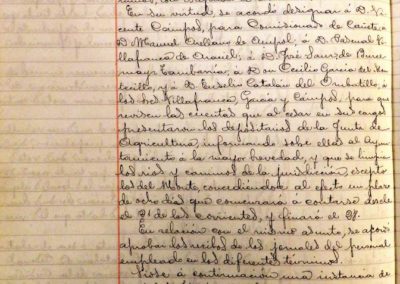 En su virtud se acordó designar á D. Vi-
cente Campos, para Comisionado de Caiceta á
D. Manuel Orellano de Ampol, á D. Pascual Vi-
llafranca de Araciel; á D. José Sanz de Burce-
mays Tambarria; á Don Cecilio García del
tecillo, y á D. Eusebio Catalán del Ombatillo, á
los Sres Villafranca, García y Campos, para que
revisen las cuentas que al cesar en sus cargos
presentaron los depositarios de la Junta de
Agricultura, informando sobre ellas al Ayun-
tamiento á la mayor brevedad, y que se limpien
los rios y caminos de la jurisdiccion, escepto
los del Monte, concediendose al efecto un plazo
de ocho dias que comenzará á contarse desde
el 21 de los corrientes, y finará el 28.
En relación con el mismo asunto, se acordó
aprobar los recibos de los jornales del personal
empleado en los diferentes terminos.
Viose á continuación una instancia de